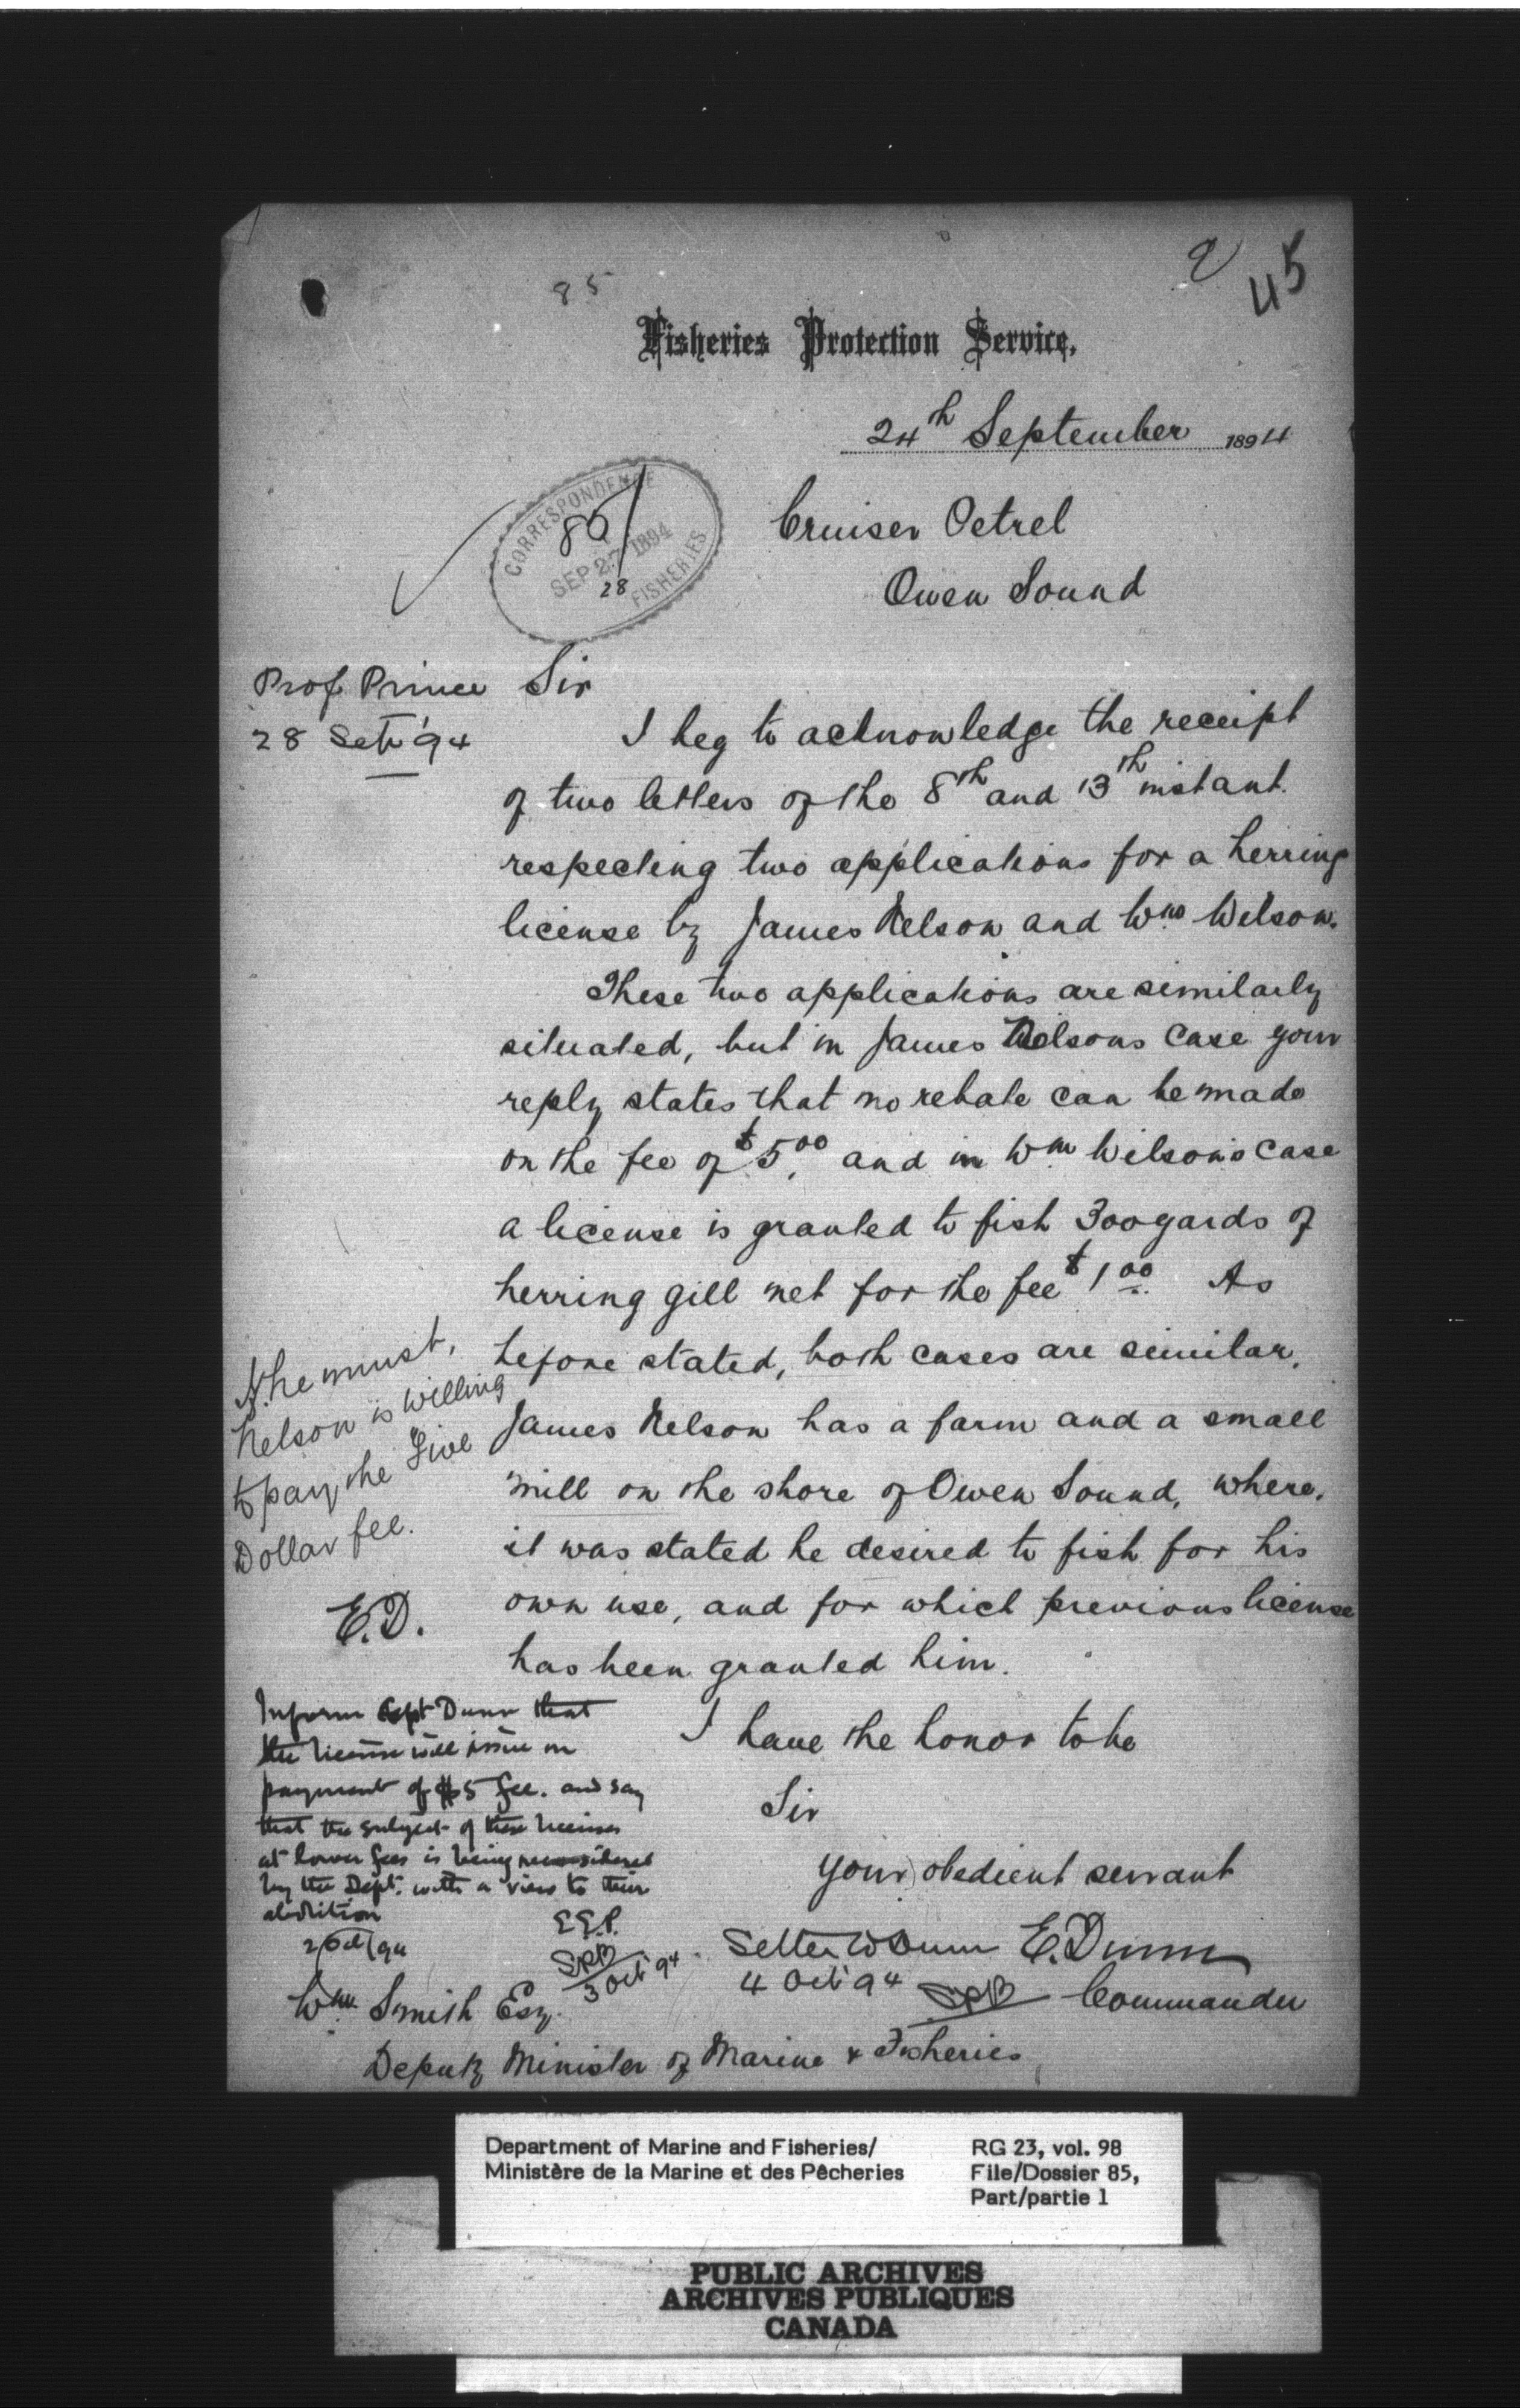 85
2
45
Fisheries Protection Service,
24th September 1894
CORRESPONDENCE
85
SEP 27 1894
28
FISHERIES
Cruiser Petrel
Owen Sound
Prof Prince
28 Sept '94
Sir
I beg to acknowledge the receipt
of two letters of the 8th and 13th instant
respecting two applications for a herring
license by James Nelson and Wm Wilson.
These two applications are similarly
situated, but in James Nelsons case your
reply states that no rebate can be made
on the fee of $5.00 and in Wm Wilson's case
a license is granted to fish 300 yards of
herring gill net for the fee $1.00 As
before stated, both cases are similar.
James Nelson has a farm and a small
mill on the shore of Owen Sound, where,
it was stated he desired to fish for his
own use, and for which previous license
has been granted him.
If he must,
Nelson is willing
to pay the Five
Dollar fee.
E.D.
I have the honor to be
Sir
your obedient servant
E. Dunn
Commander
Inform Capt Dunn that
the license will issue on
payment of $5 fee. and say
that the subject of these licenses
at lower fees is being reconsidered
by the Dept. with a view to their
abolition
E.E.P.
2/Oct/94
SPB
3 Oct 94
Letter to Dunn
4 Oct 94 SPB
Wm Smith Esq.
Deputy Minister of Marine & Fisheries
Department of Marine and Fisheries/
Ministère de la Marine et des Pêcheries
RG 23, vol. 98
File/Dossier 85,
Part/partie 1
PUBLIC ARCHIVES
ARCHIVES PUBLIQUES
CANADA